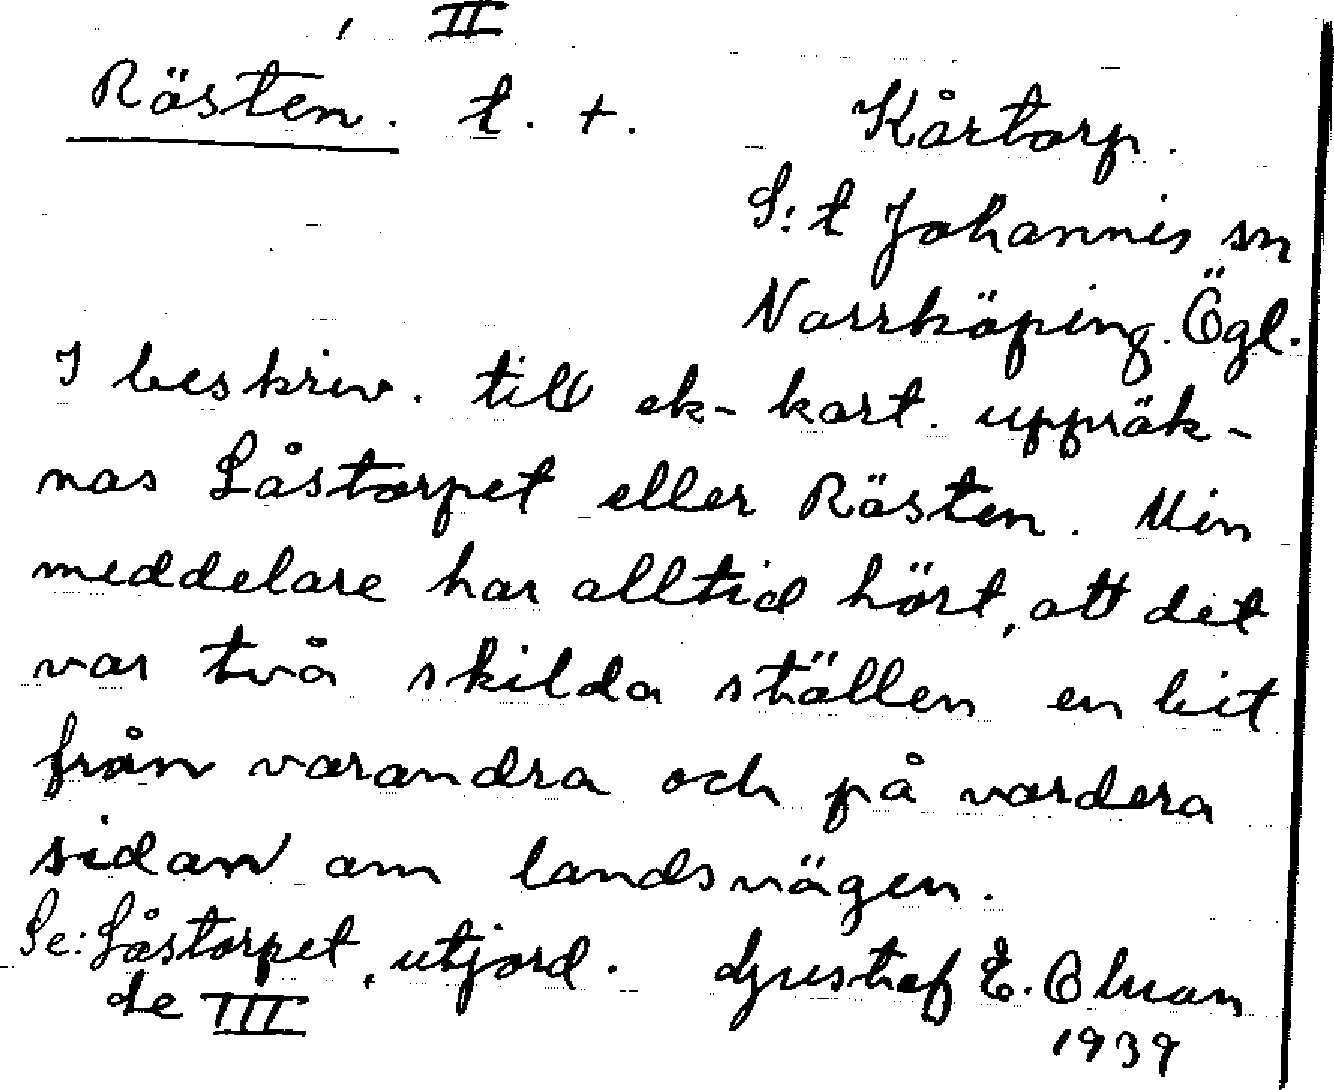 II
Rösten. t. +. Kårtorp.
S:t Johannis sn
Norrköping. Ögl.
I beskriv. till ek-kart. uppräk-
nas Låstorpet eller Rösten. Min
meddelare har alltid hört, att det
var två skilda ställen en bit
från varandra och på vardera
sidan om landsvägen.
Se: Låstorpet, utjord. Gustaf E.
de III
1939